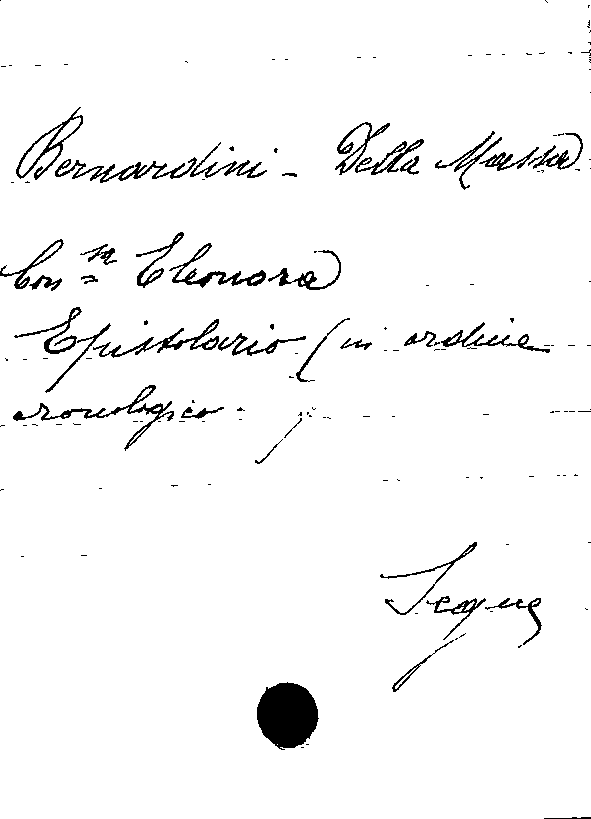 Bernardini - Della Massa
Con.sa Eleonora
Epistolario (in ordine
cronologico.)
Segue